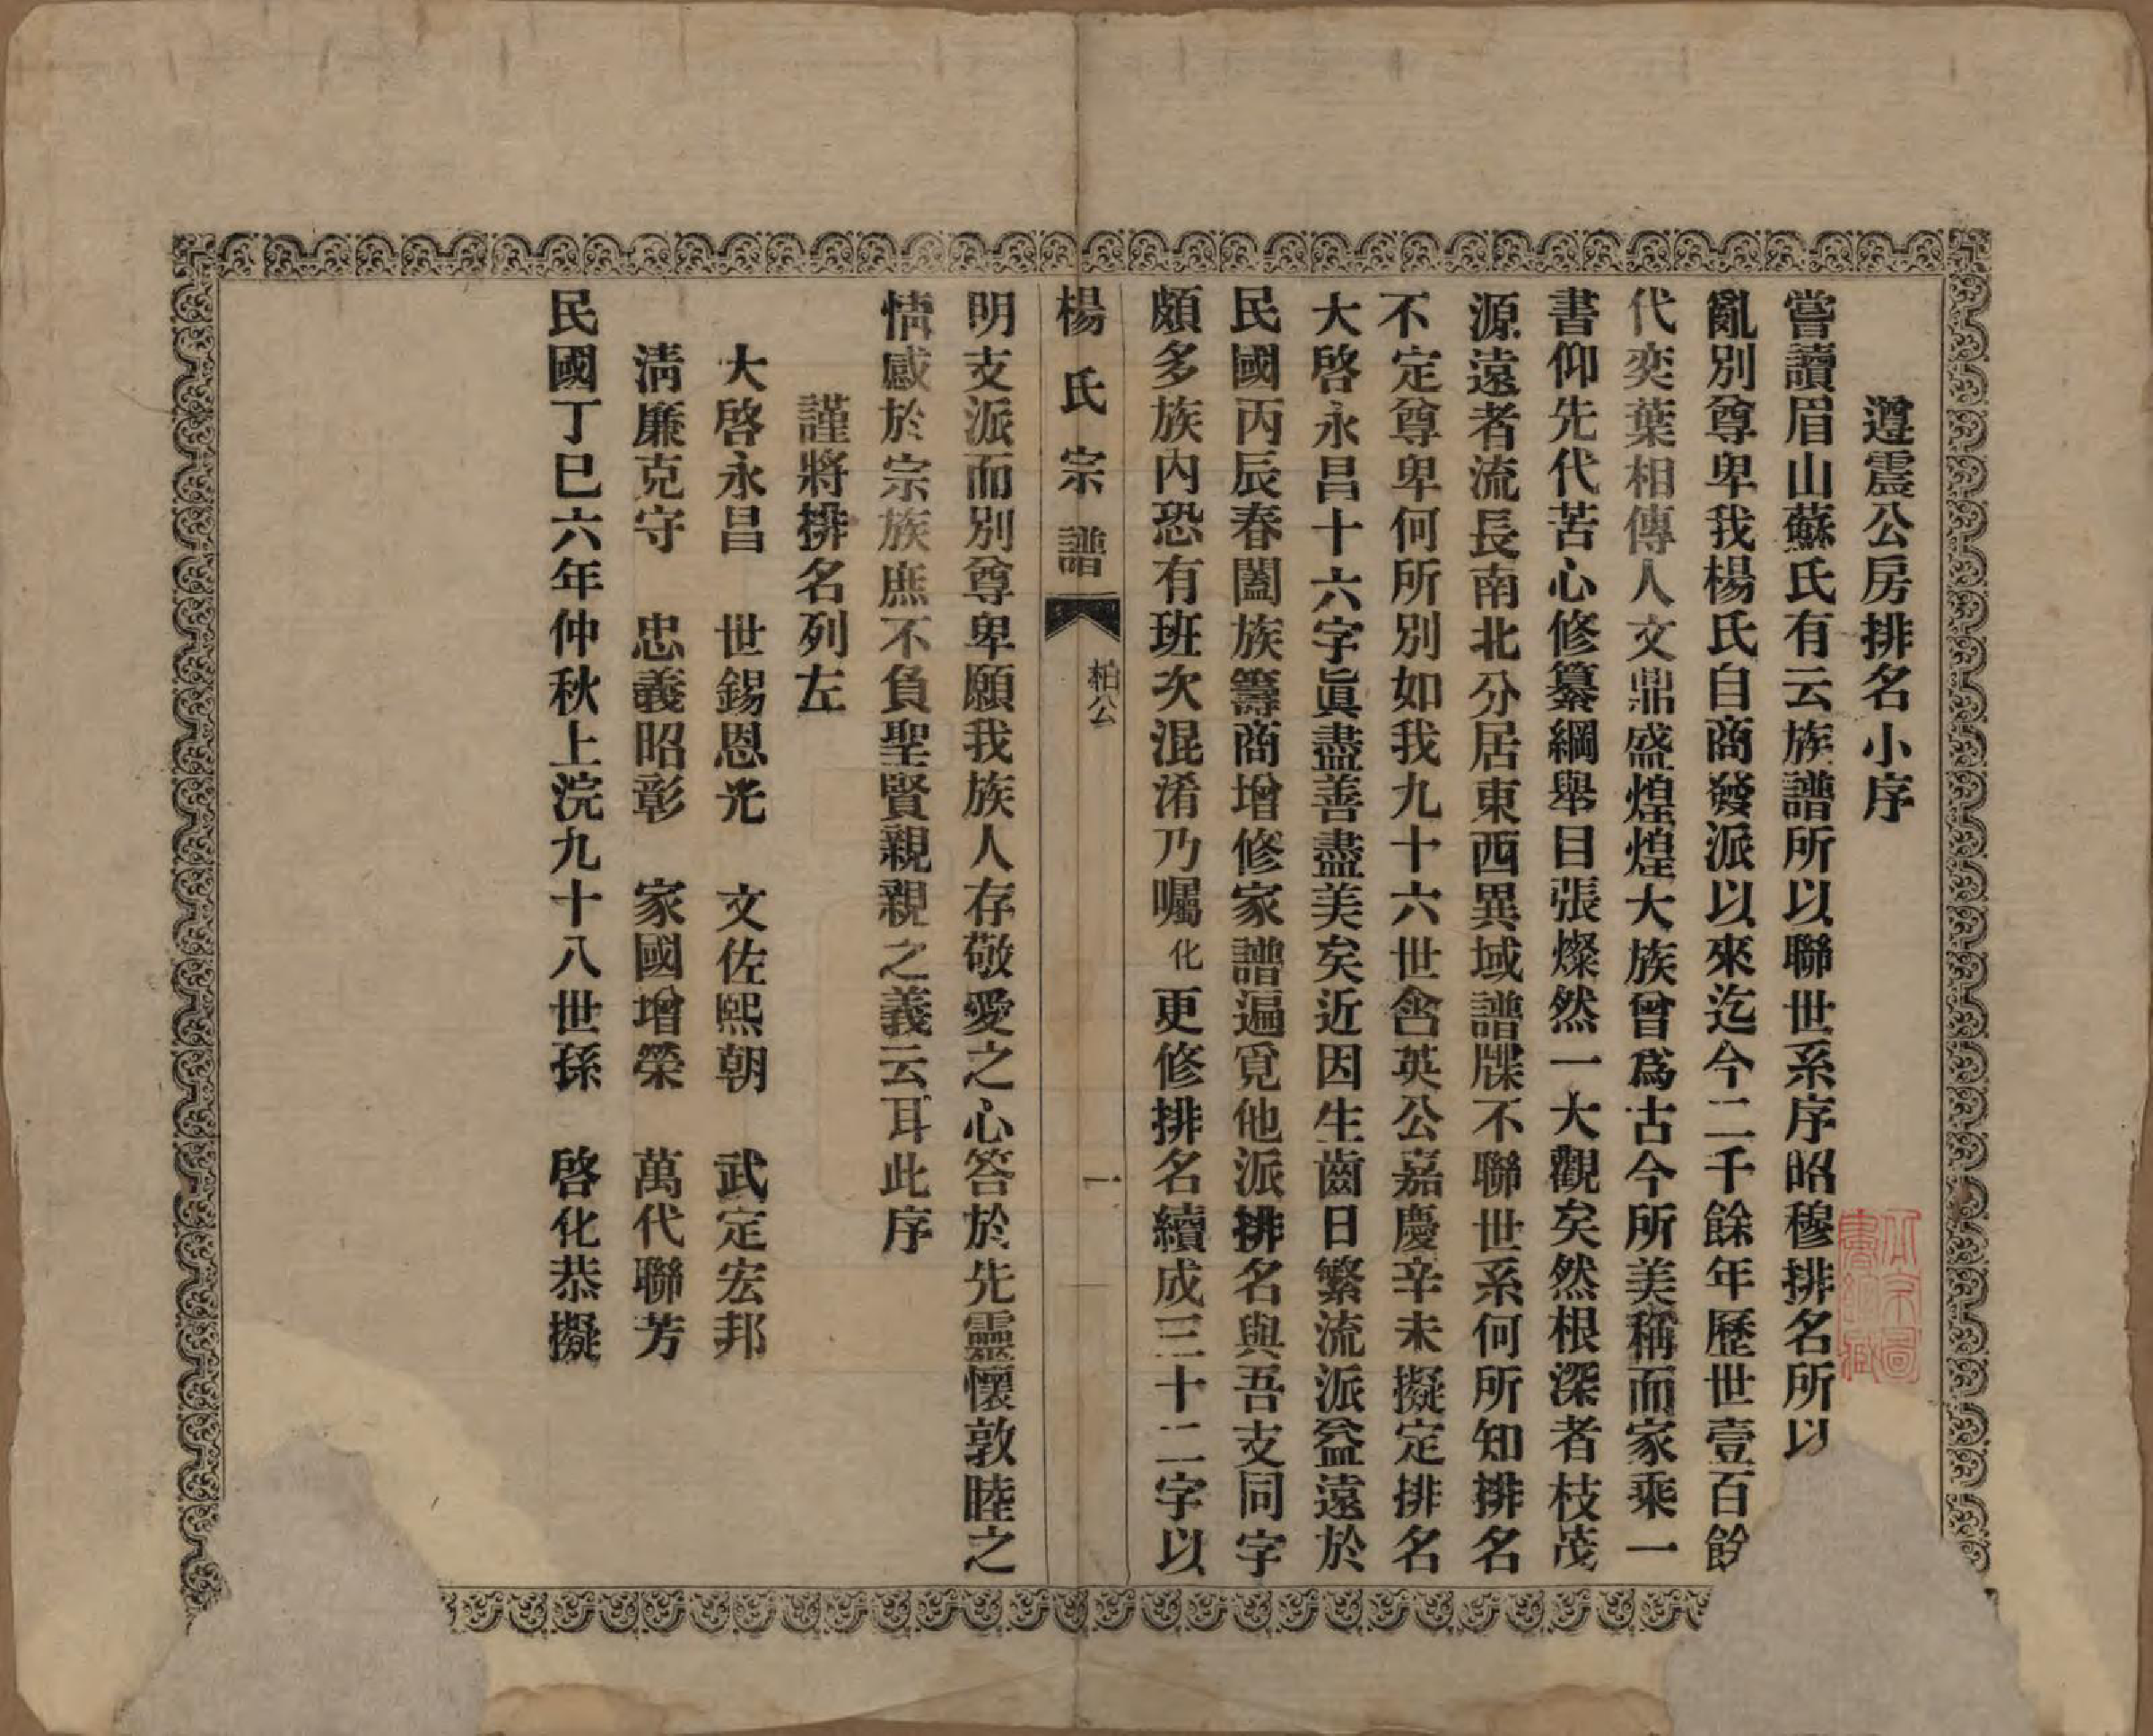 遵震公房排名小序
嘗讀眉山蘇氏有云族譜所以聯世系序昭穆排名所以
亂別尊卑我楊氏自商發派以來迄今二千餘年歷世壹百餘
代奕葉相傳人文鼎盛煌煌大族曾爲古今所美稱而家乘一
書仰先代苦心修纂綱舉目張燦然一大觀矣然根深者枝茂
源遠者流長南北分居東西異域譜牒不聯世系何所知排名
不定尊卑何所別如我九十六世含英公嘉慶辛未擬定排名
大啓永昌十六字眞盡善盡美矣近因生齒日繁流派益遠於
民國丙辰春闔族籌商增修家譜遍覓他派排名與吾支同字
頗多族內恐有班次混淆乃囑化更修排名續成三十二字以
楊氏宗譜 柏公 一
明支派而別尊卑願我族人存敬愛之心答於先靈懷敦睦之
情感於宗族庶不負聖賢親親之義云耳此序
謹將排名列左
大啓永昌 世錫恩光 文佐熙朝 武定宏邦
淸廉克守 忠義昭彰 家國增榮 萬代聯芳
民國丁巳六年仲秋上浣九十八世孫 啓化恭擬